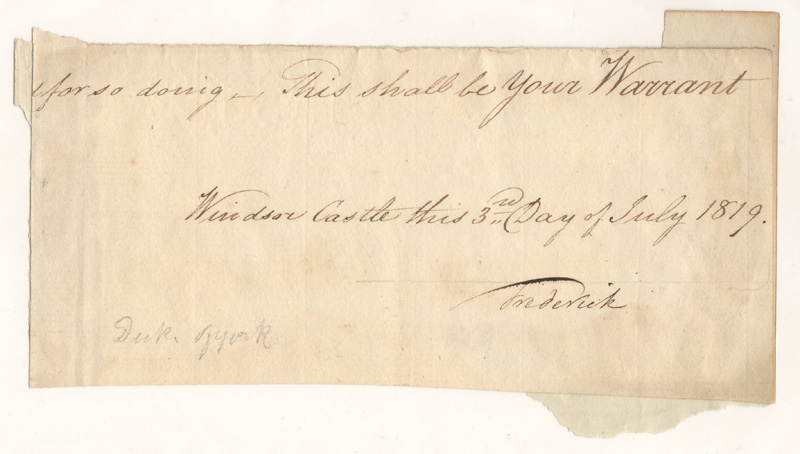 for so doing —, This shall be Your Warrant
Windsor Castle this 3rd Day of July 1819.
Frederick
Duke of York